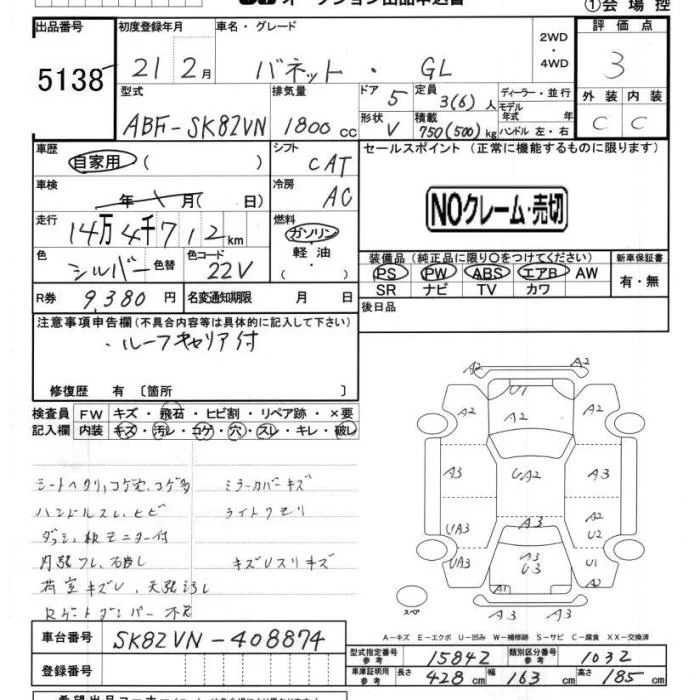 オークション出品申込書
①会場控
出品番号 初度登録年月 車名・グレード 2WD ・ 4WD 評価点
5138 21 2月 バネット・GL 3
型式 排気量 ドア 5 定員 3(6)人 ディーラー・並行
モデル年式 年 外装 内装
ABF-SK82VN 1800cc 形状 V 積載 750(500)kg ハンドル 左・右 C C
車歴 自家用 ( ) シフト CAT セールスポイント (正常に機能するものに限ります)
車検 年 月( 日) 冷房 AC
NOクレーム・売切
走行 14万4千712km 燃料 ガソリン・軽油・
色 シルバー 色替 色コード 22V
装備品 (純正品に限り○をつけてください) 新車保証書
PS PW ABS エアB AW 有・無
SR ナビ TV カワ
R券 9,380円 名変通知期限 月 日 後日品
注意事項申告欄 (不具合内容等は具体的に記入して下さい)
・ルーフキャリア付
修復歴 有 〔箇所 〕
検査員 FW キズ・飛石・ヒビ割・リペア跡・×要
記入欄 内装 キズ・汚レ・コゲ・穴・スレ・キレ・破レ
ミラーカバーキズ
ハンドルスレ、ヒビ ライトクモリ
A2 A2
U1
A2 A2 A2
A3 UA2 A3
A2
UA3 A3 U2
UA3 A3 U3 U2
A1
A3 A3
スペア
A-キズ E-エクボ U-凹み W-補修跡 S-サビ C-腐食 XX-交換済
車台番号 SK82VN-408874
型式指定番号 参考 15842 類別区分番号 参考 1032
登録番号
車庫証明用 参考 長さ 428cm 幅 163cm 高さ 185cm